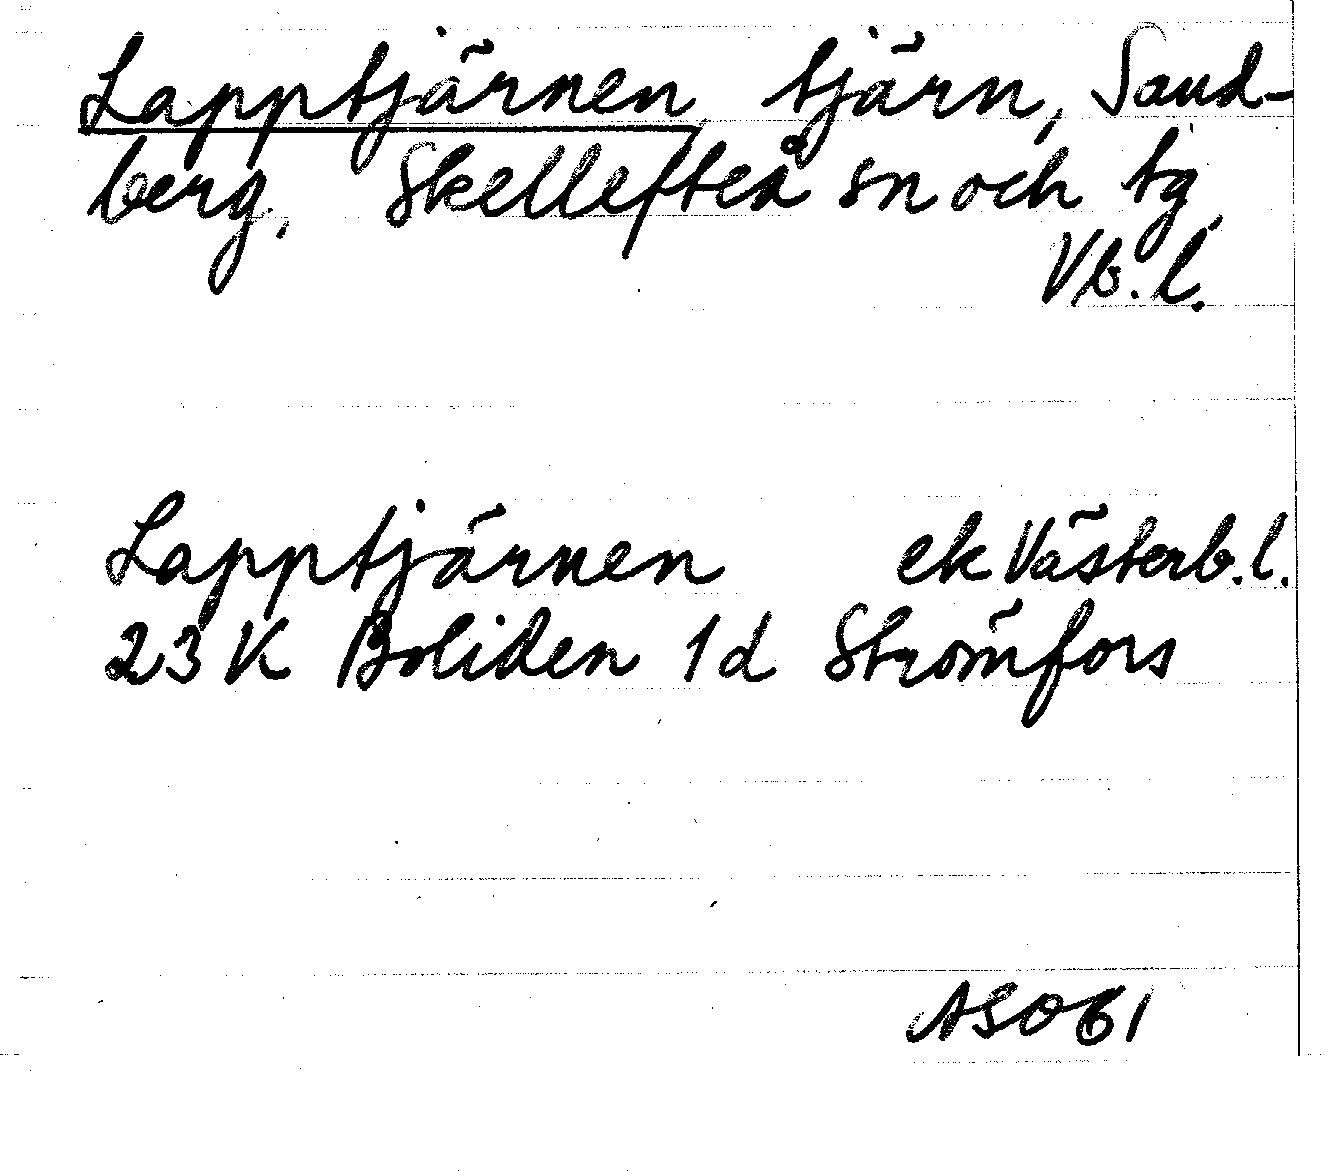 Lapptjärnen, tjärn, Sand-
berg, Skellefteå sn och tg,
Vb.l.
Lapptjärnen ek Västerb.l.
23 K Boliden 1d Strömfors
ASO 61